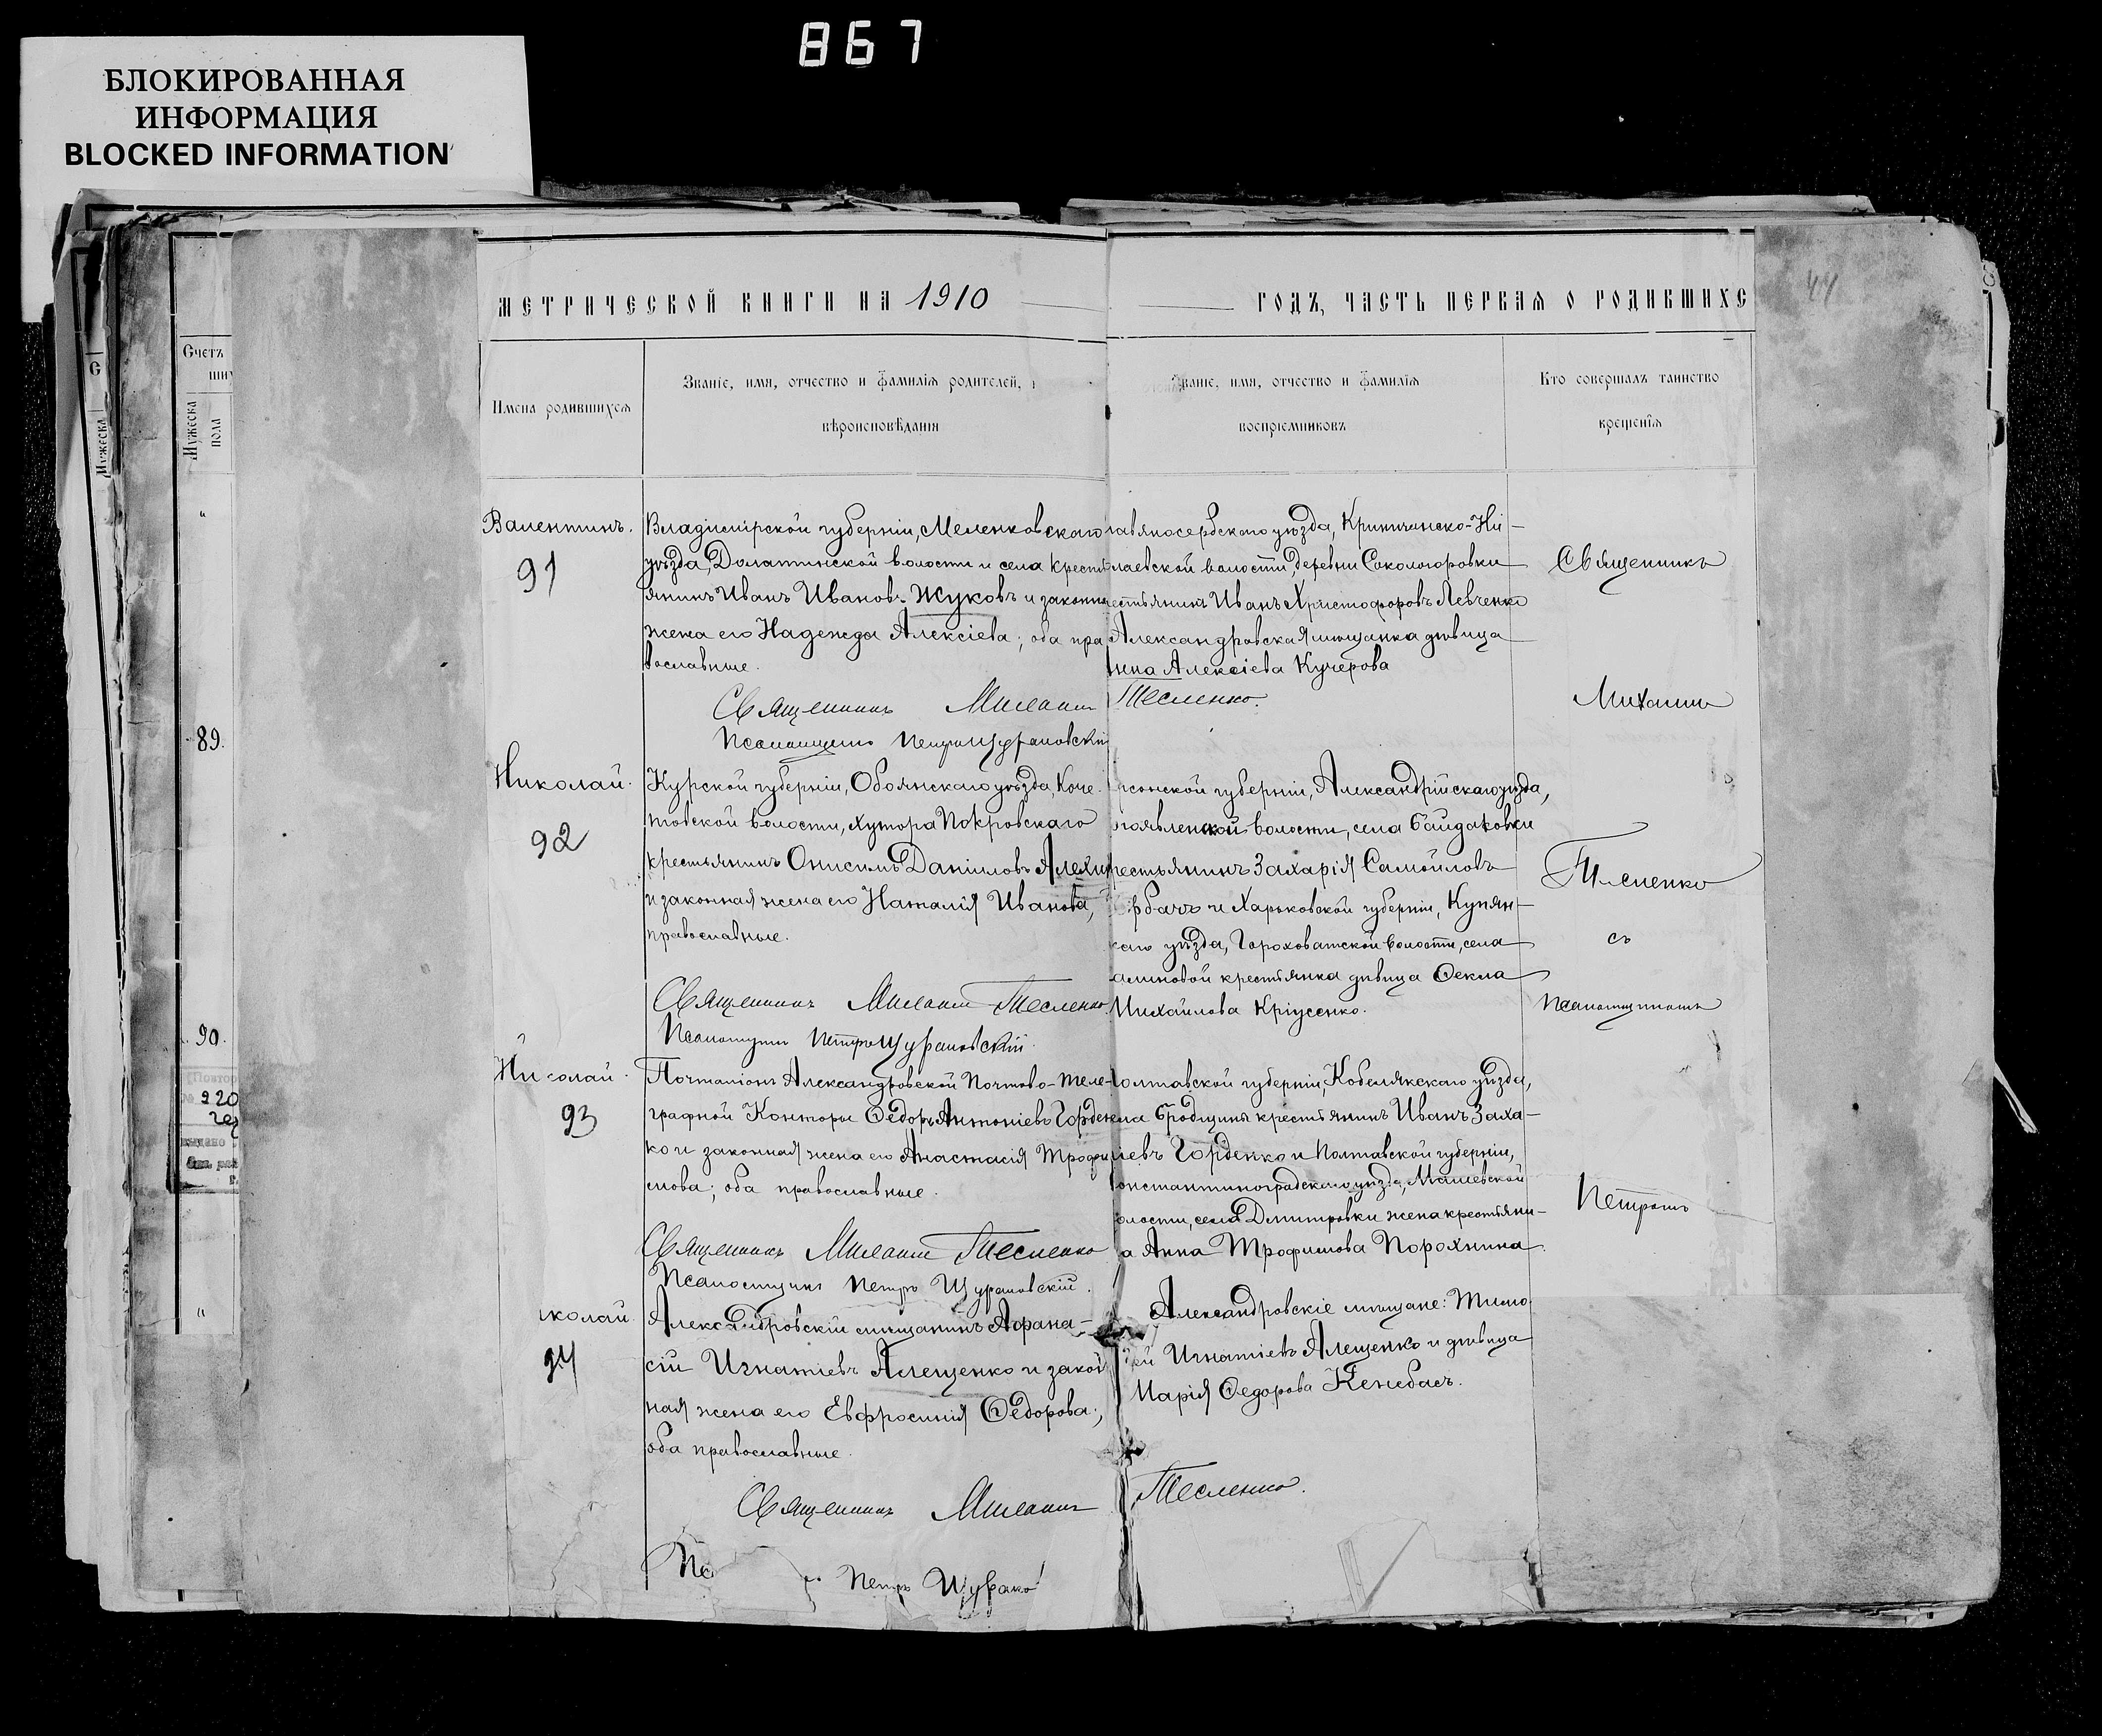 867
БЛОКИРОВАННАЯ
ИНФОРМАЦИЯ
BLOCKED INFORMATION
МЕТРИЧЕСКОЙ КНИГИ НА 1910
ГОДЪ, ЧАСТЬ ПЕРВАЯ О РОДИВШИХС
44
Счетъ
Мужеска
пола
89.
90.
220
Имена родившихся
Званіе, имя, отчество и фамилія родителей,
вѣроисповѣданія
Званіе, имя, отчество и фамилія
воспріемниковъ
Кто совершалъ таинство
крещенія
Валентинъ.
91
Владимірской губерніи, Меленковскаго
уѣзда, Долматинской волости и села крестья
янинъ Иванъ Ивановъ Жуковъ и законна
жена его Надежда Алексіева; оба пра
вославные.
Священникъ Михаилъ Тесленко.
Псаломщикъ Петръ Щурановскій
лавяносербскаго уѣзда, Криничанско-Ни
лаевской волости, деревни Сокологоровки
естьянинъ Иванъ Христофоровъ Левченко
Александровская мѣщанка дѣвица
нна Алексіева Кучерова
Николай.
92
Курской губерніи, Обоянскаго уѣзда, Коче
товской волости, хутора Покровскаго
крестьянинъ Онисимъ Даніиловъ Алехин
и законная жена его Наталія Иванова,
православные.
Священникъ Михаилъ Тесленко.
Псаломщикъ Петръ Щурановскій.
рсонской губерніи, Александрійскаго уѣзда,
огоявленской волости, села Байдаковки
рестьянинъ Захарія Самойловъ
рбачъ и Харьковской губерніи, Купян
скаго уѣзда, Гороховатской волости, села
алиновой крестьянка дѣвица Ѳекла
Михайлова Кріусенко.
Николай.
93
Почталіонъ Александровской Почтово-теле-
графной Конторы Ѳедоръ Антоніевъ Горден
ко и законная жена его Анастасія Трофи
мова; оба православные.
Священникъ Михаилъ Тесленко
Псаломщикъ Петръ Щурановскій.
олтавской губерніи, Кобелякскаго уѣзда,
ела Бродщины крестьянинъ Иванъ Заха-
ріевъ Горденко и Полтавской губерніи,
онстантиноградскаго уѣзда, Машевской
олости, села Дмитровки жена крестьяни-
а Анна Трофимова Порохнина.
иколай.
94
Александровскій мѣщанинъ Афана-
сій Игнатіевъ Алещенко и закон
ная жена его Евфросинія Ѳедорова;
оба православные.
Священникъ Михаилъ Тесленко.
Пс Петръ Щурано
Александровскіе мѣщане: Тимо
ѳей Игнатіевъ Алещенко и дѣвица
Марія Ѳедорова Кенебасъ.
Священникъ
Михаилъ
Тесленко
съ
псаломщикомъ
Петромъ